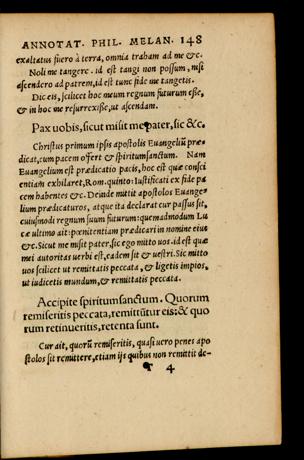 ANNOTAT. PHIL. MELAN. 148
exaltatus fuero à terra, omnia traham ad me &c.
Noli me tangere. id est tangi non possum, nisi
ascendero ad patrem, id est tunc fide me tangetis.
Dic eis, scilicet hoc meum regnum futurum esse,
& in hoc me resurrexisse, ut ascendam.
Pax uobis, sicut misit me pater, sic &c.
Christus primum ipsis apostolis Euangeliū præ-
dicat, cum pacem offert & spiritumsanctum. Nam
Euangelium est prædicatio pacis, hoc est quæ consci
entiam exhilaret, Rom. quinto: Iustificati ex fide pa
cem habentes &c. Deinde mittit apostolos Euange-
lium prædicaturos, atque ita declarat cur passus sit,
cuiusmodi regnum suum futurum: quemadmodum Lu
cæ ultimo ait: pœnitentiam prædicari in nomine eius
&c. Sicut me misit pater, sic ego mitto uos. id est quæ
mei autoritas uerbi est, eadem sit & uestri. Sic mitto
uos scilicet ut remittatis peccata, & ligetis impios,
ut iudicetis mundum, & peccata.
Accipite spiritumsanctum. Quorum
remiseritis peccata, remittūtur eis: & quo
rum retinueritis, retenta sunt.
Cur ait, quorū remiseritis, quasi uero penes apo
stolos sit remittere, etiam ijs quibus non remittit de-
4